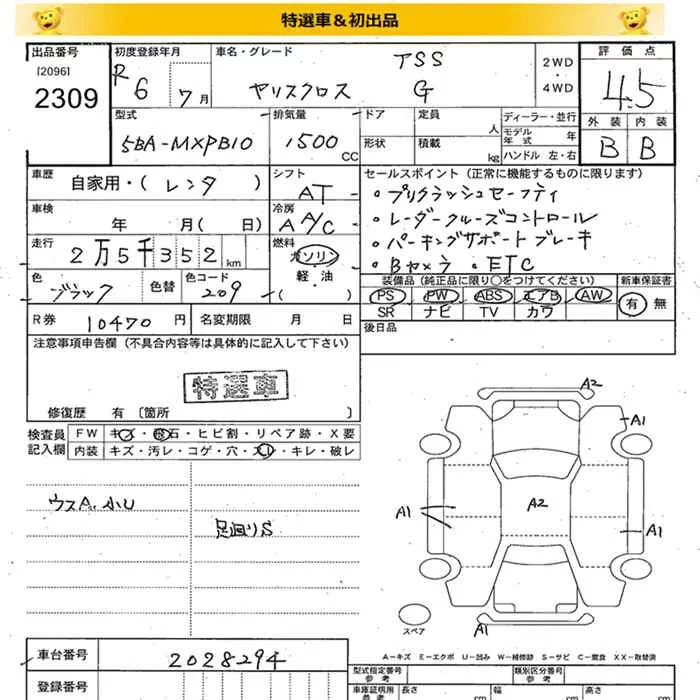 特選車＆初出品
出品番号 初度登録年月 車名・グレード TSS 2WD 評価点
[2096] R 6 7月 ヤリスクロス G ・4WD 4.5
2309 型式 排気量 ドア 定員 人 ディーラー・並行 外装 内装
5BA-MXPB10 1500 CC 形状 積載 kg モデル年式 年 B B
ハンドル 左・右
車歴 自家用・(レンタ) シフト AT セールスポイント（正常に機能するものに限ります）
車検 年 月(日) 冷房 A/C ・プリクラッシュセーフティ
走行 2万5千352km 燃料 ガソリン ・レーダークルーズコントロール
軽・油 ・パーキングサポートブレーキ
( ) ・Bカメラ ・ETC
色 ブラック 色替 色コード 209 装備品（純正品に限り○をつけてください） 新車保証書
PS PW ABS エアB AW 有 無
SR ナビ TV カワ
R券 10470円 名変期限 月 日 後日品
注意事項申告欄（不具合内容等は具体的に記入して下さい）
特選車
修復歴 有〔箇所 〕
検査員記入欄 FW キズ・飛石・ヒビ割・リペア跡・X要
内装 キズ・汚レ・コゲ・穴・スレ・キレ・破レ
ウスA.小U
足廻りS
A2
A1
A2
A1
A1
A1
スペア
A−キズ E−エクボ U−凹み W−補修跡 S−サビ C−腐食 XX−取替済
車台番号 2028294
登録番号
型式指定番号 参考 類別区分番号 参考
車庫証明用 参考 長さ cm 幅 cm 高さ cm